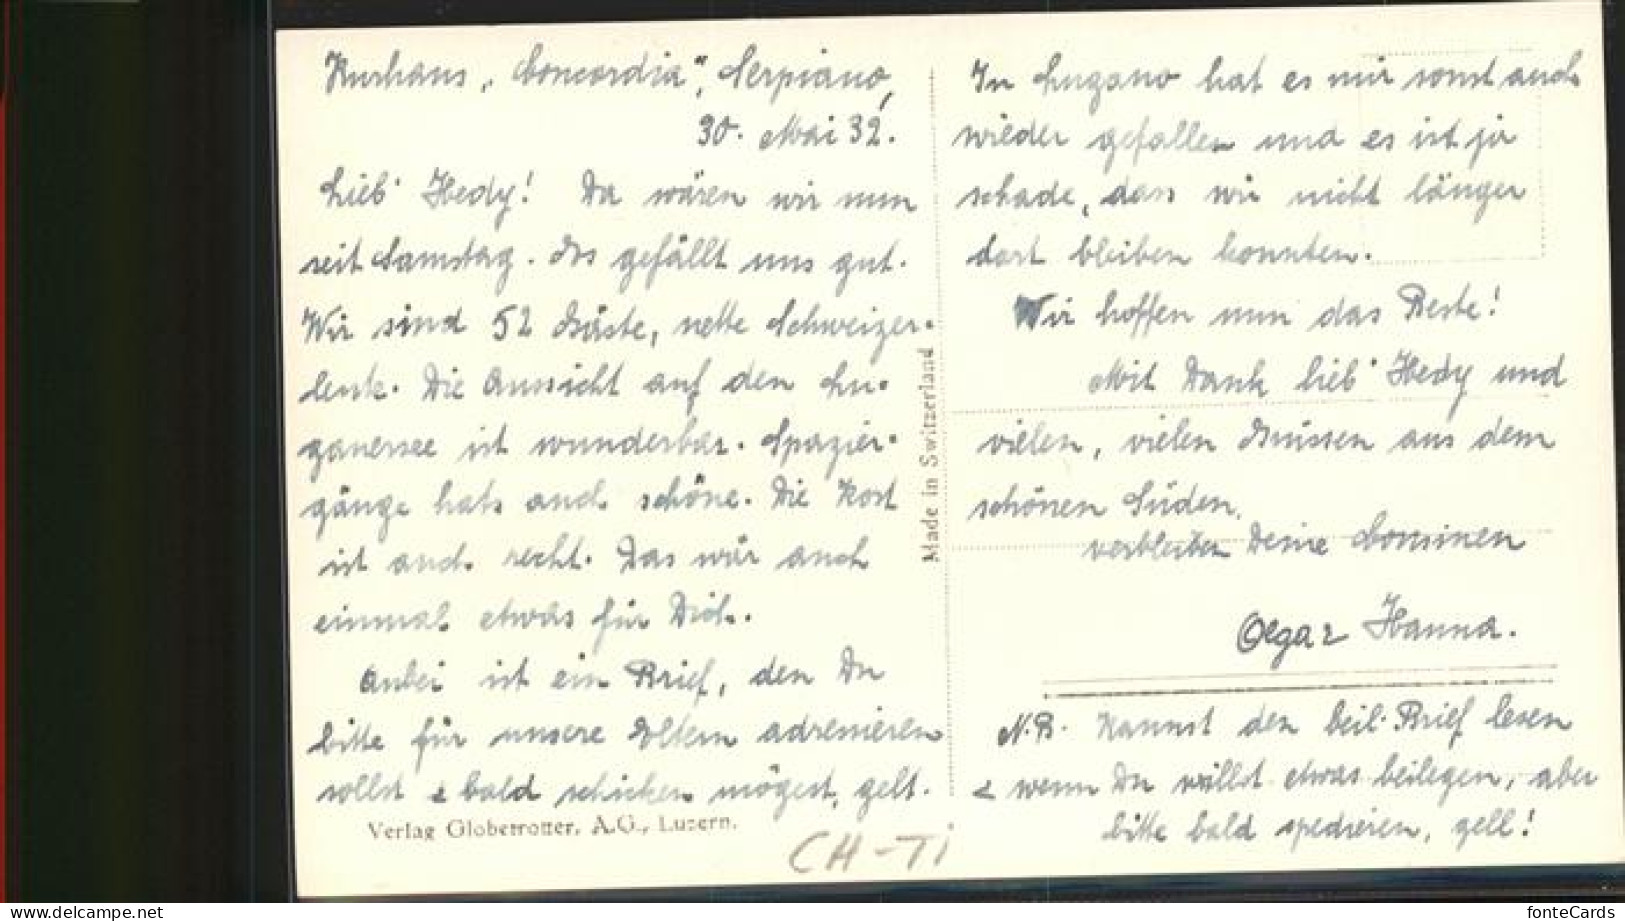 Kurhaus „Concordia", Serpiano,
30. Mai 32.
Lieb' Hedy! Da wären wir nun
seit Samstag. Es gefällt uns gut.
Wir sind 52 Gäste, nette Schweizer-
leute. Die Aussicht auf den Lu-
ganersee ist wunderbar. Spazier-
gänge hats auch schöne. Die Kost
ist auch recht. Das wär auch
einmal etwas für Dich.
Anbei ist ein Brief, den Du
bitte für unsere Eltern adressieren
sollst & bald schicken mögest, gelt.
Verlag Globetrotter, A.G., Luzern.
Made in Switzerland
In Lugano hat es mir sonst auch
wieder gefallen und es ist ja
schade, dass wir nicht länger
dort bleiben konnten.
Wir hoffen nun das Beste!
Mit Dank lieb' Hedy und
vielen, vielen Grüssen aus dem
schönen Süden,
verbleiben Deine Cousinen
Olga & Hanna.
N.B. Kannst den beil. Brief lesen
& wenn Du willst etwas beilegen, aber
bitte bald spedieren, gell!
CH-TI
www.delcampe.net
fonteCards